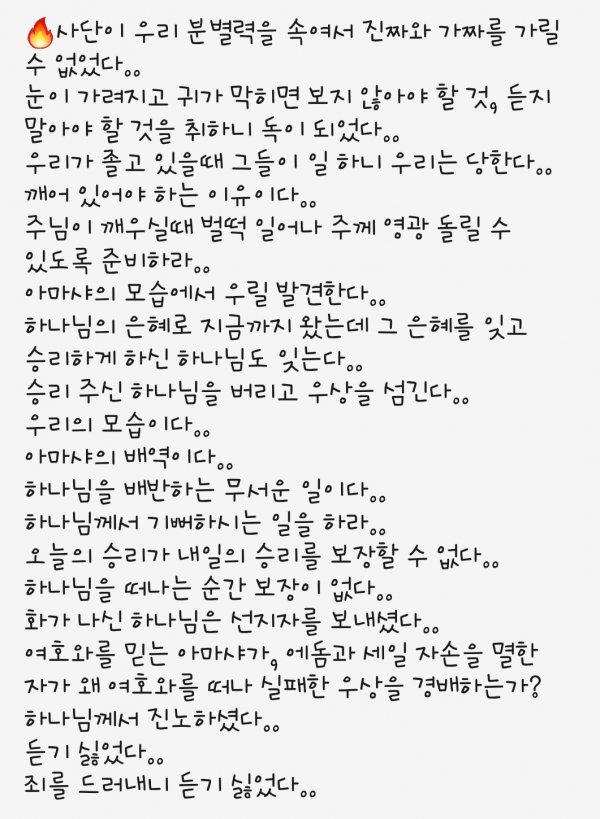 🔥사단이 우리 분별력을 속여서 진짜와 가짜를 가릴
수 없었다。。
눈이 가려지고 귀가 막히면 보지 않아야 할 것, 듣지
말아야 할 것을 취하니 독이 되었다。。
우리가 졸고 있을때 그들이 일 하니 우리는 당한다。。
깨어 있어야 하는 이유이다。。
주님이 깨우실때 벌떡 일어나 주께 영광 돌릴 수
있도록 준비하라。。
아마샤의 모습에서 우릴 발견한다。。
하나님의 은혜로 지금까지 왔는데 그 은혜를 잊고
승리하게 하신 하나님도 잊는다。。
승리 주신 하나님을 버리고 우상을 섬긴다。。
우리의 모습이다。。
아마샤의 배역이다。。
하나님을 배반하는 무서운 일이다。。
하나님께서 기뻐하시는 일을 하라。。
오늘의 승리가 내일의 승리를 보장할 수 없다。。
하나님을 떠나는 순간 보장이 없다。。
화가 나신 하나님은 선지자를 보내셨다。。
여호와를 믿는 아마샤가, 에돔과 세일 자손을 멸한
자가 왜 여호와를 떠나 실패한 우상을 경배하는가?
하나님께서 진노하셨다。。
듣기 싫었다。。
죄를 드러내니 듣기 싫었다。。